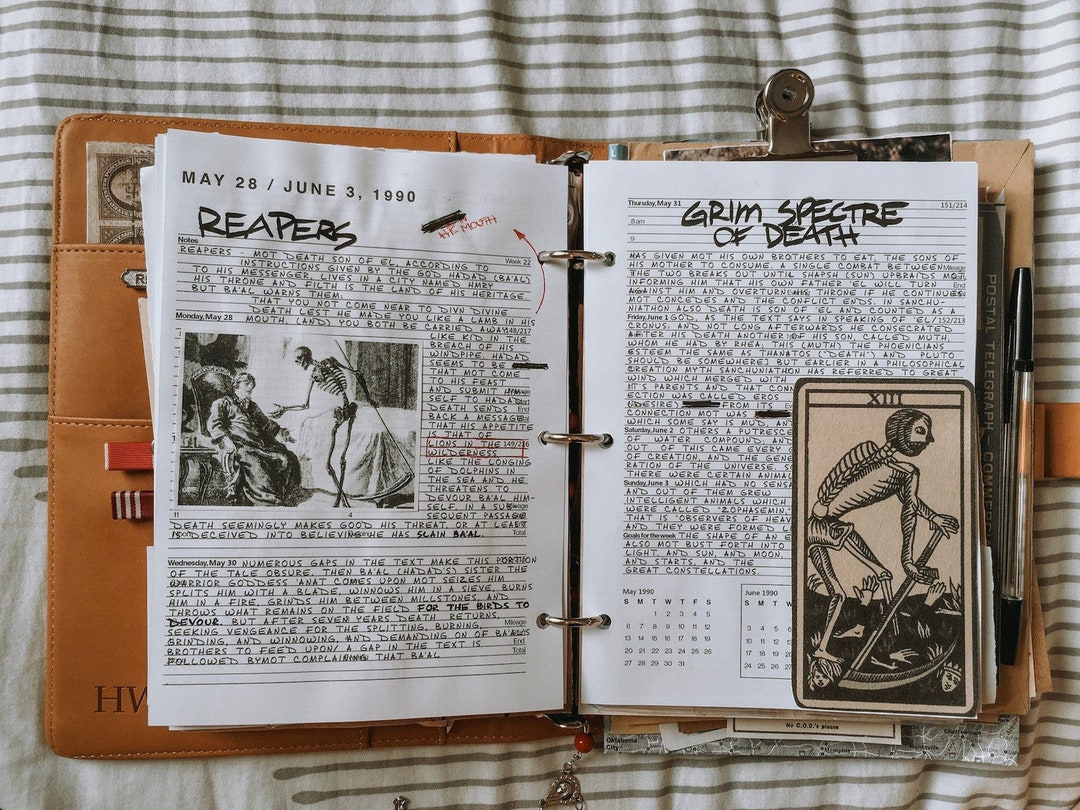 MAY 28 / JUNE 3, 1990
REAPERS
MOUTH
Notes
Week 22
REAPERS - MOT DEATH SON OF EL, ACCORDING TO
INSTRUCTIONS GIVEN BY THE GOD HADAD (BA'AL)
TO HIS MESSENGER LIVES IN A CITY NAMED HMRY
HIS THRONE AND FILTH IS THE LAND OF HIS HERITAGE.
BUT BA'AL WARNS THEM:
THAT YOU NOT COME NEAR TO DIVN DIVINE
DEATH LEST HE MADE YOU LIKE A LAMB IN HIS
Monday, May 28
MOUTH, (AND) YOU BOTH BE CARRIED AWAY
148/217
LIKE KID IN THE
BREACH OF HIS
WINDPIPE. HADAD
SEEMS TO BE
THAT MOT COME
TO HIS FEAST
AND SUBMIT HYM-
SELF TO HADAD
DEATH SENDS
BACK A MESSAGE
THAT HIS APPETITE
IS THAT OF
LIONS IN THE
149/216
WILDERNESS
LIKE THE LONGING
OF DOLPHINS IN
THE SEA AND HE
THREATENS TO
DEVOUR BA'AL HIM-
SELF. IN A SUB-
SEQUENT PASSAGE
DEATH SEEMINGLY MAKES GOOD HIS THREAT, OR AT LEAST
IS DECEIVED INTO BELIEVING HE HAS SLAIN BA'AL.
Total
Wednesday, May 30
NUMEROUS GAPS IN THE TEXT MAKE THIS PORTION
OF THE TALE OBSURE. THEN BA'AL (HADAD'S) SISTER THE
WARRIOR GODDESS 'ANAT COMES UPON MOT SEIZES HIM
SPLITS HIM WITH A BLADE, WINNOWS HIM IN A SIEVE, BURNS
HIM IN A FIRE, GRINDS HIM BETWEEN MILLSTONES, AND
THROWS WHAT REMAINS ON THE FIELD FOR THE BIRDS TO
DEVOUR. BUT AFTER SEVEN YEARS DEATH RETURNS,
Mileage
SEEKING VENGEANCE FOR THE SPLITTING, BURNING,
GRINDING, AND WINNOWING, AND DEMANDING ON OF BA'ALS
End
BROTHERS TO FEED UPON/ A GAP IN THE TEXT IS
Total
FOLLOWED BYMOT COMPLAINING THAT BA'AL
HW
Thursday, May 31
151/214
8am
9
GRIM SPECTRE
OF DEATH
HAS GIVEN MOT HIS OWN BROTHERS TO EAT, THE SONS OF
HIS MOTHER TO CONSUME. A SINGLE COMBAT BETWEEN
Mileage
THE TWO BREAKS OUT UNTIL SHAPSH (SUN) UPBRAIDS MOT,
INFORMING HIM THAT HIS OWN FATHER 'EL WILL TURN
End
AGAINST HIM AND OVERTURN HIS THRONE IF HE CONTINUES.
MOT CONCEDES AND THE CONFLICT ENDS. IN SANCHU-
NIATHON ALSO DEATH IS SON OF 'EL AND COUNTED AS A
Friday, June 1
GOD, AS THE TEXT SAYS IN SPEAKING OF 'EL/
152/213
CRONUS: AND NOT LONG AFTERWARDS HE CONSECRATED
AFTER HIS DEATH ANOTHER OF HIS SON, CALLED MUTH,
WHOM HE HAD BY RHEA. THIS (MUTH) THE PHOENICIANS
ESTEEM THE SAME AS THANATOS ('DEATH') AND PLUTO
SHOULD BE SOMEWHERE) BUT EARLIER IN A PHILOSOPHICAL
CREATION MYTH SANCHUNIATHON HAS REFERRED TO GREAT
WIND WHICH MERGED WITH
ITS PARENTS AND THAT CONN
ECTION WAS CALLED EROS
(DESIRE) FROM ITS
CONNECTION MOT WAS
WHICH SOME SAY IS MUD, AN
Saturday, June 2
OTHERS A PUTRESCE
OF WATER COMPOUND; AND
OUT OF THIS CAME EVERY G
OF CREATION, AND THE GENE
RATION OF THE UNIVERSE, S
THERE WERE CERTAIN ANIMA
Sunday, June 3
WHICH HAD NO SENSA
AND OUT OF THEM GREW
INTELLIGENT ANIMALS WHICH
WERE CALLED 'ZOPHASEMIN,'
THAT IS 'OBSERVERS OF HEAV
AND THEY WERE FORMED L
Goals for the week
THE SHAPE OF AN E
ALSO MOT BUST FORTH INTO
LIGHT, AND SUN, AND MOON,
AND STARTS, AND THE
GREAT CONSTELLATIONS.
May 1990
S M T W T F S
1 2 3 4 5
6 7 8 9 10 11 12
13 14 15 16 17 18 19
20 21 22 23 24 25 26
27 28 29 30 31
June 1990
S M T W
3 4 5 6
10 11 12 13
17 18 19 20
24 25 26
XIII
POSTAL TELEGRAPH
No C.O.D.'s please
Oklahoma
City
Memphis
Chattanooga